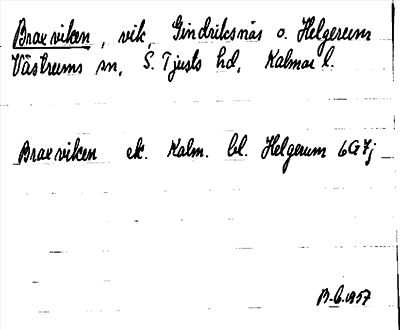 Braxviken, vik, Gindriksnäs o. Helgerum
Västrums sn, S. Tjusts hd, Kalmar l.
Braxviken ek. Kalm. bl. Helgerum 6G7j
B-G. 1957